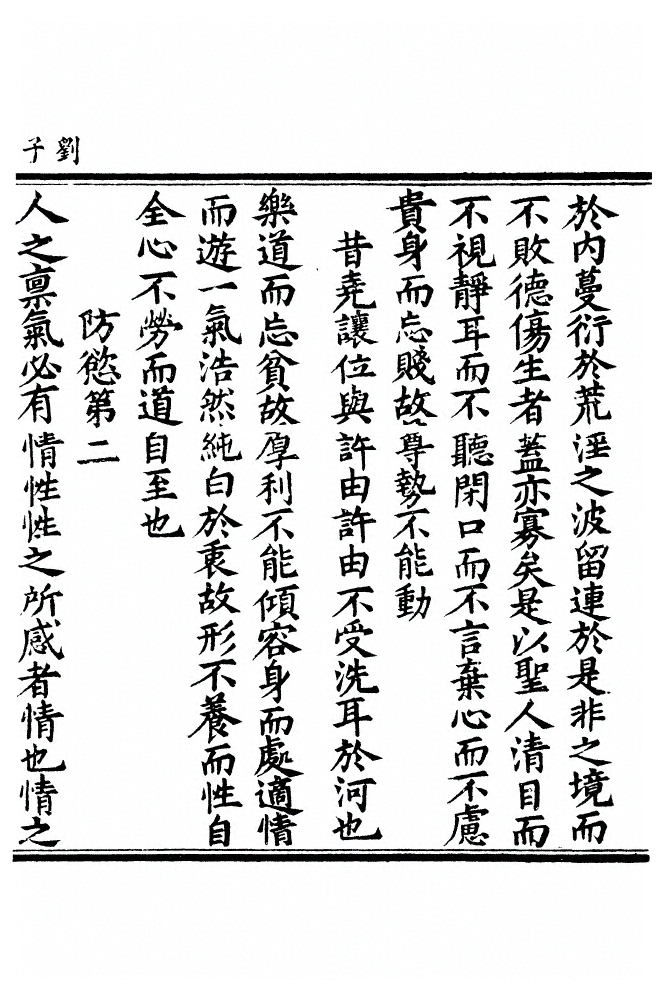 劉子
於內蔓衍於荒淫之波留連於是非之境而
不敗德傷生者蓋亦寡矣是以聖人清目而
不視靜耳而不聽閉口而不言棄心而不慮
貴身而忘賤故尊勢不能動
昔堯讓位與許由許由不受洗耳於河也
樂道而忘貧故厚利不能傾容身而處適情
而遊一氣浩然純白於衷故形不養而性自
全心不勞而道自至也
防慾第二
人之稟氣必有情性性之所感者情也情之